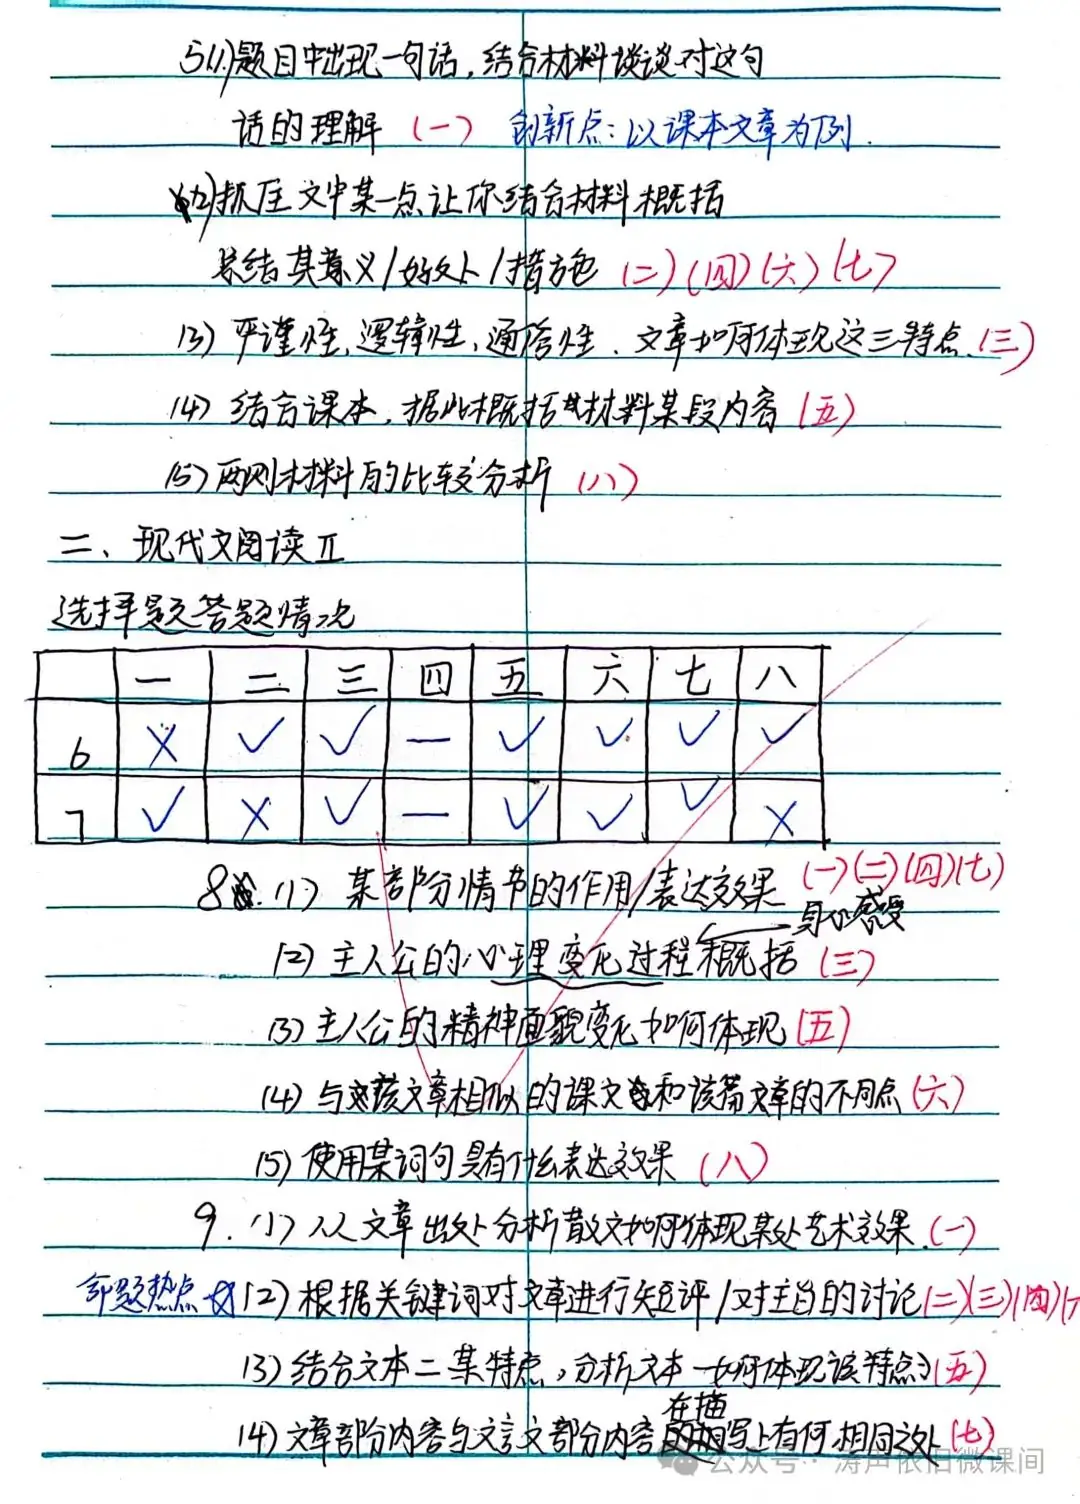 5(1)题目中出现一句话,结合材料谈谈对这句
话的理解 (一) 创新点:以课本文章为例.
(2)抓住文中某一点让你结合材料概括
总结其意义/好处/措施 (二)(四)(六)(七)
(3)严谨性、逻辑性、通俗性.文章如何体现这三特点.(三)
(4)结合课本,据此概括材料某段内容 (五)
(5)两则材料的比较分析 (八)
二、现代文阅读Ⅱ
选择题答题情况
一 二 三 四 五 六 七 八
6 × ✓ ✓ — ✓ ✓ ✓ ✓
7 ✓ × ✓ — ✓ ✓ ✓ ×
8.(1) 某部分情节的作用/表达效果 (一)(二)(四)(七)
身心感受
(2)主人公的心理变化过程概括 (三)
(3)主人公的精神面貌变化如何体现 (五)
(4)与该文章相似的课文和该篇文章的不同点 (六)
(5)使用某词句具有什么表达效果 (八)
9.(1)从文章出处分析散文如何体现某处艺术效果.(一)
命题热点 (2)根据关键词对文章进行短评/对主旨的讨论(二)(三)(四)
(3)结合文本二某特点,分析文本一如何体现该特点(五)
在描
(4)文章部分内容与文言文部分内容写上有何相同之处(七)
公众号·涛声依旧微课间